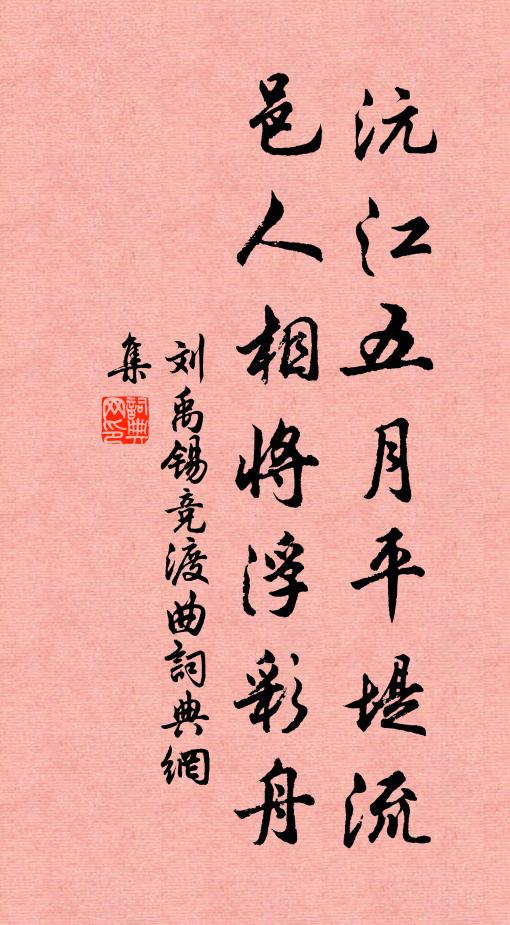 沅江五月平堤流
邑人相将浮彩舟
刘禹锡竞渡曲詞典網
集
詞典
网印